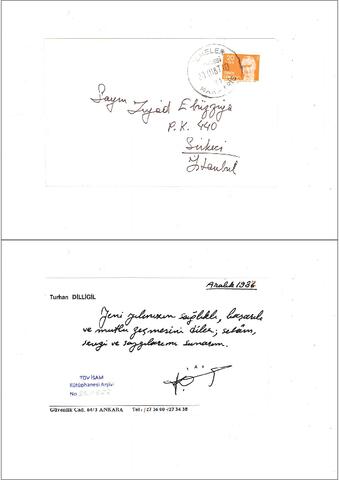 20
Sayın Ziyad Ebüzziya
P.K. 440
Sirkeci
İstanbul
Aralık 1986
Turhan DİLLİGİL
Yeni yılınızın sağlıklı, başarılı
ve mutlu geçmesini diler; selâm,
sevgi ve saygılarımı sunarım.
TDV İSAM
Kütüphanesi Arşivi
No
Güvenlik Cad. 64/3 ANKARA Tel: /27 36 60 /27 34 38